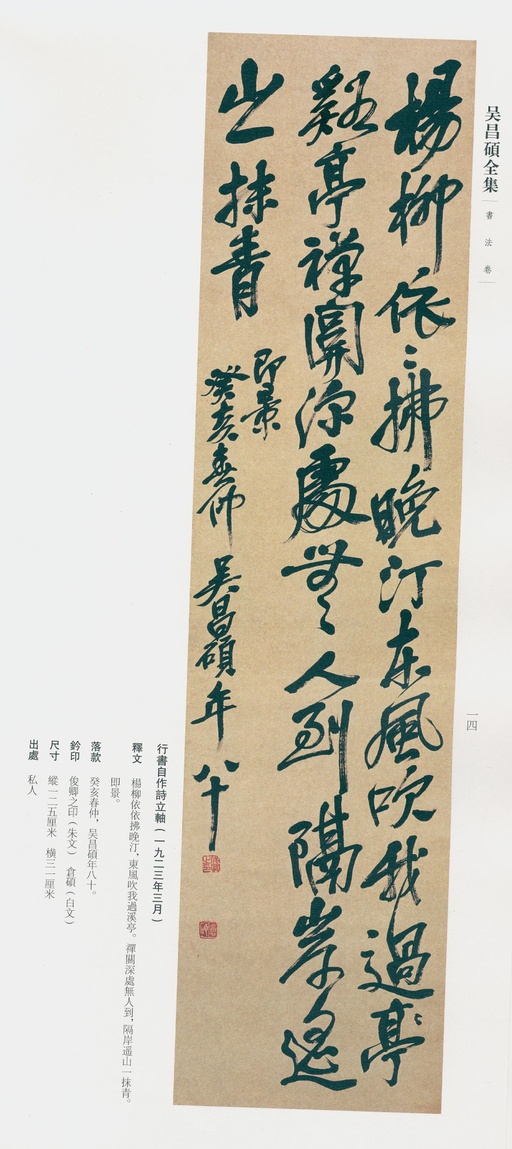 吴昌碩全集
書法卷
一四
楊柳依〻拂晚汀東風吹我過亭〻
谿亭禪關深處無〻人到隔岸遙
山一抹青
即景
癸亥春仲 吴昌碩年八十
行書自作詩立軸(一九二三年三月)
釋文 楊柳依依拂晚汀,東風吹我過溪亭。禪關深處無人到,隔岸遥山一抹青。
即景。
落款 癸亥春仲,吴昌碩年八十。
鈐印 俊卿之印(朱文) 倉碩(白文)
尺寸 縱一二五厘米 橫三一厘米
出處 私人